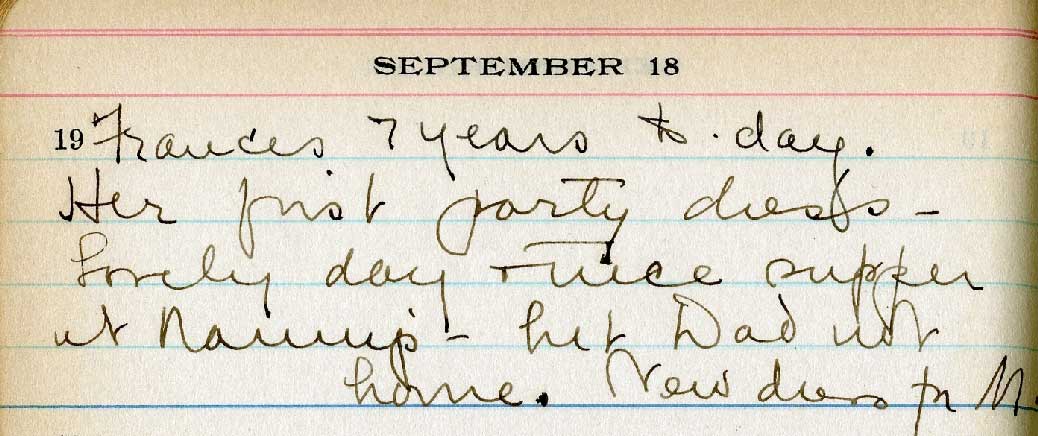 SEPTEMBER 18
19 Frances 7 years to-day.
Her first party dress-
Lovely day + nice supper
at Nannie's - but Dad not
home. New dress for M.